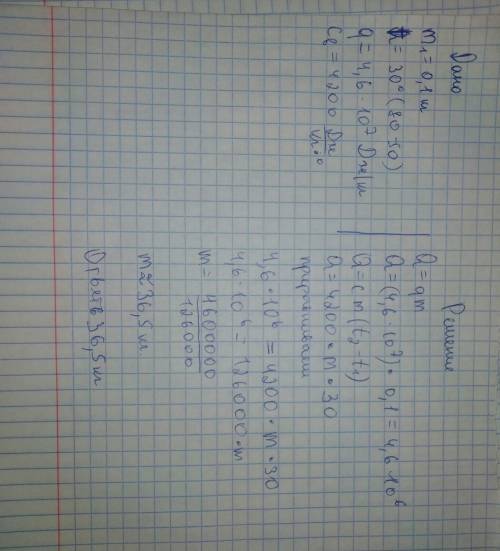 Дано
m₁ = 0,1 кг
t = 30° (80-50)
q = 4,6 · 10⁷ Дж/кг
Cв = 4200 Дж/кг·°
Решение
Q = qm
Q = (4,6 · 10⁷) · 0,1 = 4,6 · 10⁶
Q = cm (t₂-t₁)
Q = 4200 · m · 30
приравниваем
4,6 · 10⁶ = 4200 · m · 30
4,6 · 10⁶ = 126000 · m
m = 4600000/126000
m ≈ 36,5 кг
Ответ 36,5 кг